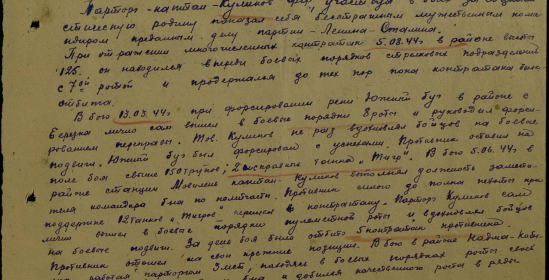 Парторг - капитан - Куликов
стическую родину показал себя бесстрашным мужественным коман
диром преданным делу партии - Ленина - Сталина.
При отражении многочисленных контратак 5.03.44г в районе высоты
125. он находился впереди боевых порядков стрелковых подразделений
с 7ой ротой и продержался до тех пор пока контратака была
отбита.
В бою 13.03.44г при форсировании реки Южный буг в районе с
Березка лично сам вышел в боевые порядки 8 роты и руководил форси-
рованием переправы. Тов. Куликов не раз вдохновлял бойцов на боевые
подвиги. Южный буг был форсирован с успехами. Противник оставил на
поле боя свыше 150 трупов; 2 танка "Тигр". В бою 5.06.44г в
районе станции Мовилень капитан Куликов выполнял должность замести-
теля командира б-на по политчасти. Противник силою до полка пехоты при
поддержке 12 танков перешел в контратаку. Парторг Куликов сам
лично вышел в боевые порядки пулеметной роты и вдохновлял бойцов
на боевые подвиги. За день боя было отбито 5 контратак противника.
Противник отошел на свои прежние позиции. В бою в районе
работая парторгом находясь в боевых порядках роты своей
и добился качественного роста в ряды